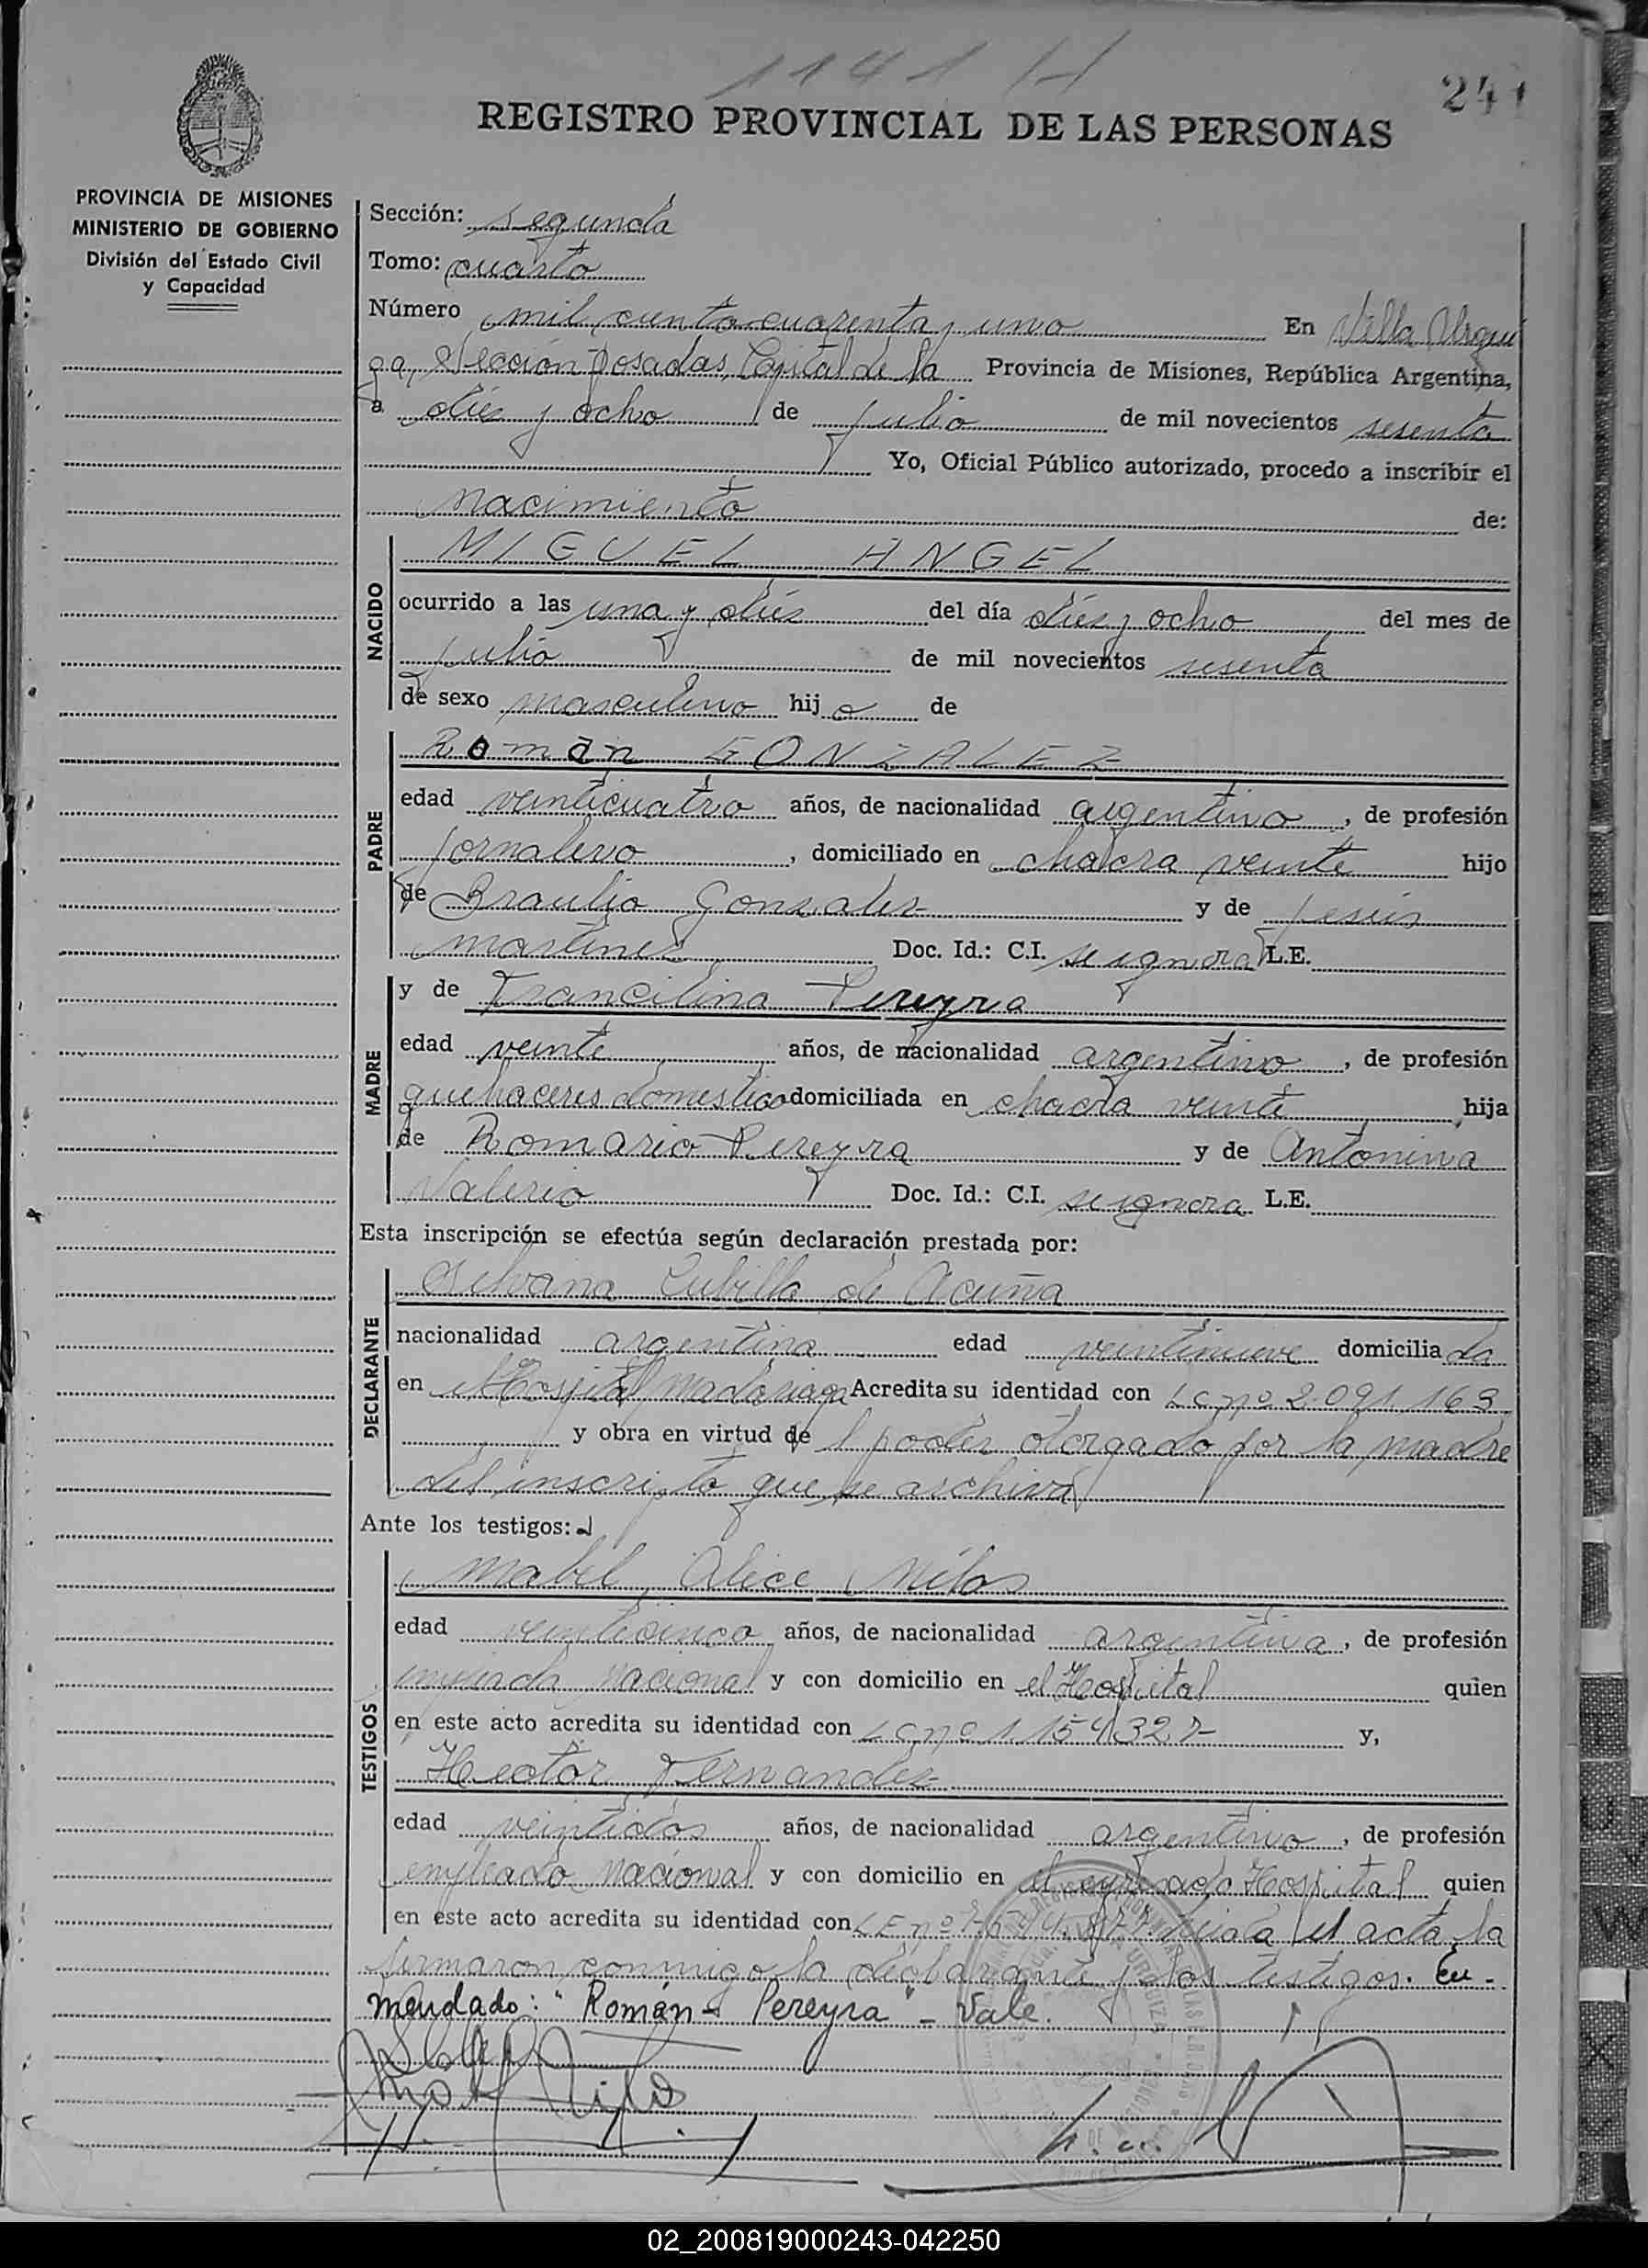 1141 H
241
REGISTRO PROVINCIAL DE LAS PERSONAS
PROVINCIA DE MISIONES
MINISTERIO DE GOBIERNO
División del Estado Civil
y Capacidad
Sección: segunda
Tomo: cuarto
Número mil ciento cuarenta y uno En Villa Urqui
za, Sección Posadas, Capital de la Provincia de Misiones, República Argentina,
a diez y ocho de julio de mil novecientos sesenta
Yo, Oficial Público autorizado, procedo a inscribir el
nacimiento de:
NACIDO
MIGUEL ANGEL
ocurrido a las una y diez del día diez y ocho del mes de
julio de mil novecientos sesenta
de sexo masculino hijo de
PADRE
Román GONZALEZ
edad veinticuatro años, de nacionalidad argentino, de profesión
jornalero, domiciliado en chacra veinte hijo
de Braulio Gonzalez y de Jesús
Martinez Doc. Id.: C.I. se ignora L.E.
MADRE
y de Francilina Pereyra
edad veinte años, de nacionalidad argentino, de profesión
quehaceres domestico domiciliada en chacra veinte, hija
de Romario Pereyra y de Antonina
Valerio Doc. Id.: C.I. se ignora L.E.
Esta inscripción se efectúa según declaración prestada por:
DECLARANTE
Silvana Cubilla de Acuña
nacionalidad argentina edad veintinueve domiciliada
en Hospital Madariaga Acredita su identidad con Lc nº 2.091.163
y obra en virtud del poder otorgado por la madre
del inscripto que se archiva
Ante los testigos:
TESTIGOS
Mabel Alice Milos
edad veinticinco años, de nacionalidad argentina, de profesión
empleada nacional y con domicilio en el Hospital quien
en este acto acredita su identidad con Lc nº 1154327 y,
Hector Fernandez
edad veintidos años, de nacionalidad argentino, de profesión
empleado nacional y con domicilio en el Hospital quien
en este acto acredita su identidad con LE nº leida el acta la
firmaron conmigo la declarante y los testigos. En-
mendado: "Román - Pereyra" - Vale.
02_200819000243-042250